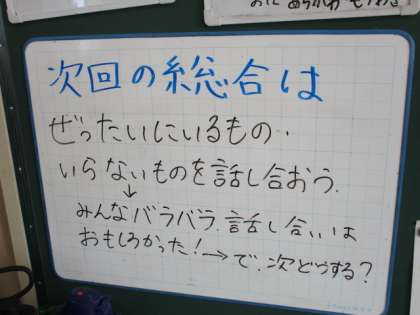 次回の総合は
ぜったいにいるもの‥
いらないものを話し合おう.
↓
みんなバラバラ.話し合いは
おもしろかった!→で.次どうする?